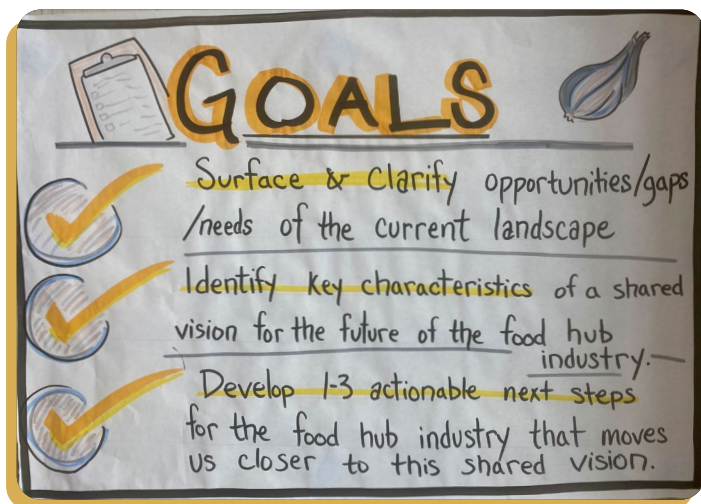 GOALS
Surface & Clarify opportunities/gaps
/needs of the current landscape
Identify key characteristics of a shared
vision for the future of the food hub
industry.
Develop 1-3 actionable next steps
for the food hub industry that moves
us closer to this shared vision.